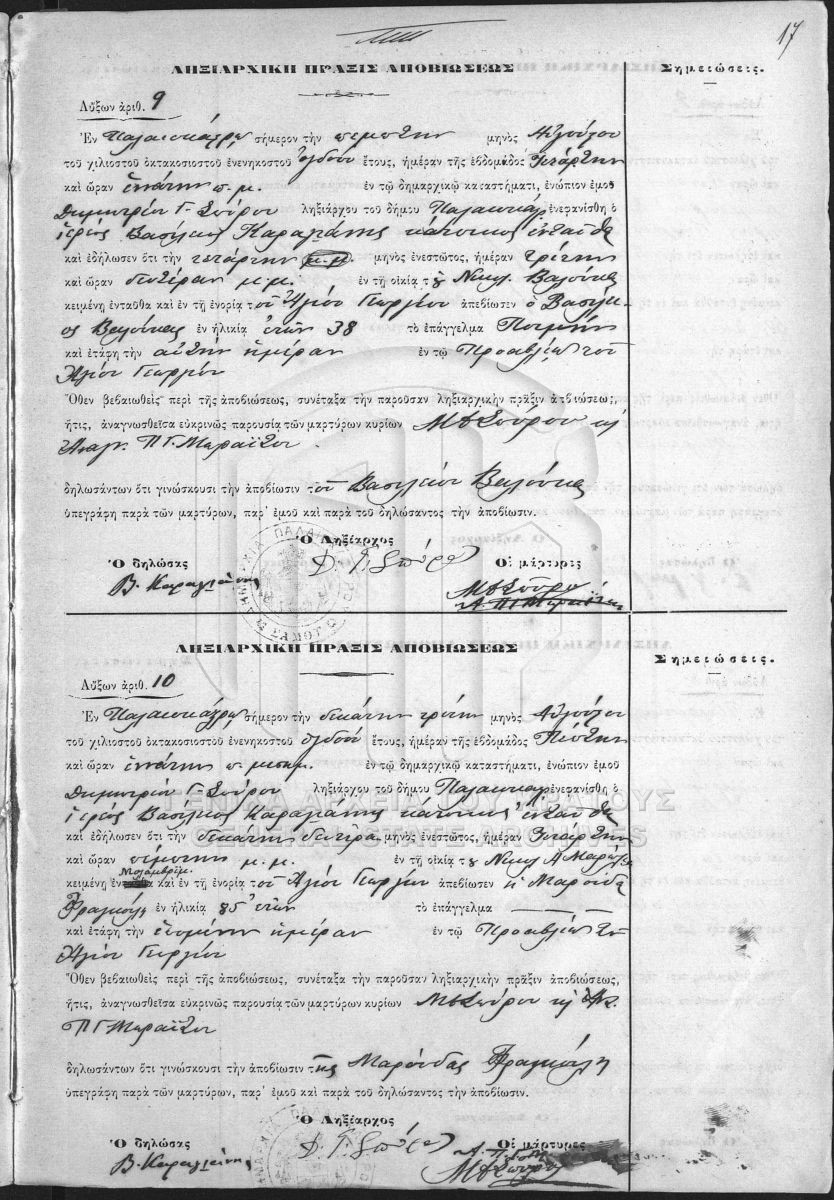 17
ΛΗΞΙΑΡΧΙΚΗ ΠΡΑΞΙΣ ΑΠΟΒΙΩΣΕΩΣ
Σημειώσεις.
Αὔξων ἀριθ. 9
Ἐν σήμερον τὴν πέμπτην μηνὸς Αὐγούστου
τοῦ χιλιοστοῦ ὀκτακοσιοστοῦ ἐνενηκοστοῦ ὀγδόου ἔτους, ἡμέραν τῆς ἑβδομάδος Τετάρτην
καὶ ὥραν ἐνάτην π.μ. ἐν τῷ δημαρχικῷ καταστήματι, ἐνώπιον ἐμοῦ
Δημητρίου Γ. Σπύρου ληξιάρχου τοῦ δήμου ἐνεφανίσθη ὁ
ἱερεὺς Βασίλειος κάτοικος ἐνταῦθα
καὶ ἐδήλωσεν ὅτι τὴν τετάρτην μηνὸς ἐνεστῶτος, ἡμέραν τρίτην
καὶ ὥραν δευτέραν μ.μ. ἐν τῇ οἰκίᾳ τοῦ Νικολ.
κειμένῃ ἐνταῦθα καὶ ἐν τῇ ἐνορίᾳ τοῦ Ἁγίου Γεωργίου ἀπεβίωσεν ὁ Βασίλει-
ος ἐν ἡλικίᾳ ἐτῶν 38 τὸ ἐπάγγελμα Ποιμὴν
καὶ ἐτάφη τὴν αὐτὴν ἡμέραν ἐν τῷ Προαυλίῳ τοῦ
Ἁγίου Γεωργίου
Ὅθεν βεβαιωθεὶς περὶ τῆς ἀποβιώσεως, συνέταξα τὴν παροῦσαν ληξιαρχικὴν πρᾶξιν ἀποβιώσεως,
ἥτις, ἀναγνωσθεῖσα εὐκρινῶς παρουσίᾳ τῶν μαρτύρων κυρίων Σπύρου κ
Π Γ.
δηλωσάντων ὅτι γινώσκουσι τὴν ἀποβίωσιν τοῦ Βασιλείου
ὑπεγράφη παρὰ τῶν μαρτύρων, παρ' ἐμοῦ καὶ παρὰ τοῦ δηλώσαντος τὴν ἀποβίωσιν.
Ὁ Ληξίαρχος
Ὁ δηλώσας
Οἱ μάρτυρες
Δ. Γ. Σπύρου
ΛΗΞΙΑΡΧΙΚΗ ΠΡΑΞΙΣ ΑΠΟΒΙΩΣΕΩΣ
Σημειώσεις.
Αὔξων ἀριθ. 10
Ἐν σήμερον τὴν δεκάτην τρίτην μηνὸς Αὐγούστου
τοῦ χιλιοστοῦ ὀκτακοσιοστοῦ ἐνενηκοστοῦ ὀγδόου ἔτους, ἡμέραν τῆς ἑβδομάδος Πέμπτην
καὶ ὥραν ἐνάτην ἐν τῷ δημαρχικῷ καταστήματι, ἐνώπιον ἐμοῦ
Δημητρίου Γ. Σπύρου ληξιάρχου τοῦ δήμου ἐνεφανίσθη ὁ
ἱερεὺς Βασίλειος κάτοικος ἐνταῦθα
ΓΕΝΙΚΑ ΑΡΧΕΙΑ ΤΟΥ ΚΡΑΤΟΥΣ
GENERAL STATE ARCHIVES
καὶ ἐδήλωσεν ὅτι τὴν δεκάτην δευτέραν μηνὸς ἐνεστῶτος, ἡμέραν Τετάρτην
καὶ ὥραν πέμπτην μ.μ. ἐν τῇ οἰκίᾳ τοῦ Νικολ Α
κειμένῃ καὶ ἐν τῇ ἐνορίᾳ τοῦ Ἁγίου Γεωργίου ἀπεβίωσεν ἡ Μαρούδα
Φραγκούλη ἐν ἡλικίᾳ 85 ἐτῶν τὸ ἐπάγγελμα
καὶ ἐτάφη τὴν ἑπομένην ἡμέραν ἐν τῷ Προαυλίῳ τοῦ
Ἁγίου Γεωργίου
Ὅθεν βεβαιωθεὶς περὶ τῆς ἀποβιώσεως, συνέταξα τὴν παροῦσαν ληξιαρχικὴν πρᾶξιν ἀποβιώσεως,
ἥτις, ἀναγνωσθεῖσα εὐκρινῶς παρουσίᾳ τῶν μαρτύρων κυρίων Σπύρου κ
Π Γ
δηλωσάντων ὅτι γινώσκουσι τὴν ἀποβίωσιν τῆς Μαρούδας Φραγκούλη
ὑπεγράφη παρὰ τῶν μαρτύρων, παρ' ἐμοῦ καὶ παρὰ τοῦ δηλώσαντος τὴν ἀποβίωσιν.
Ὁ Ληξίαρχος
Ὁ δηλώσας
Οἱ μάρτυρες
Δ. Γ. Σπύρου